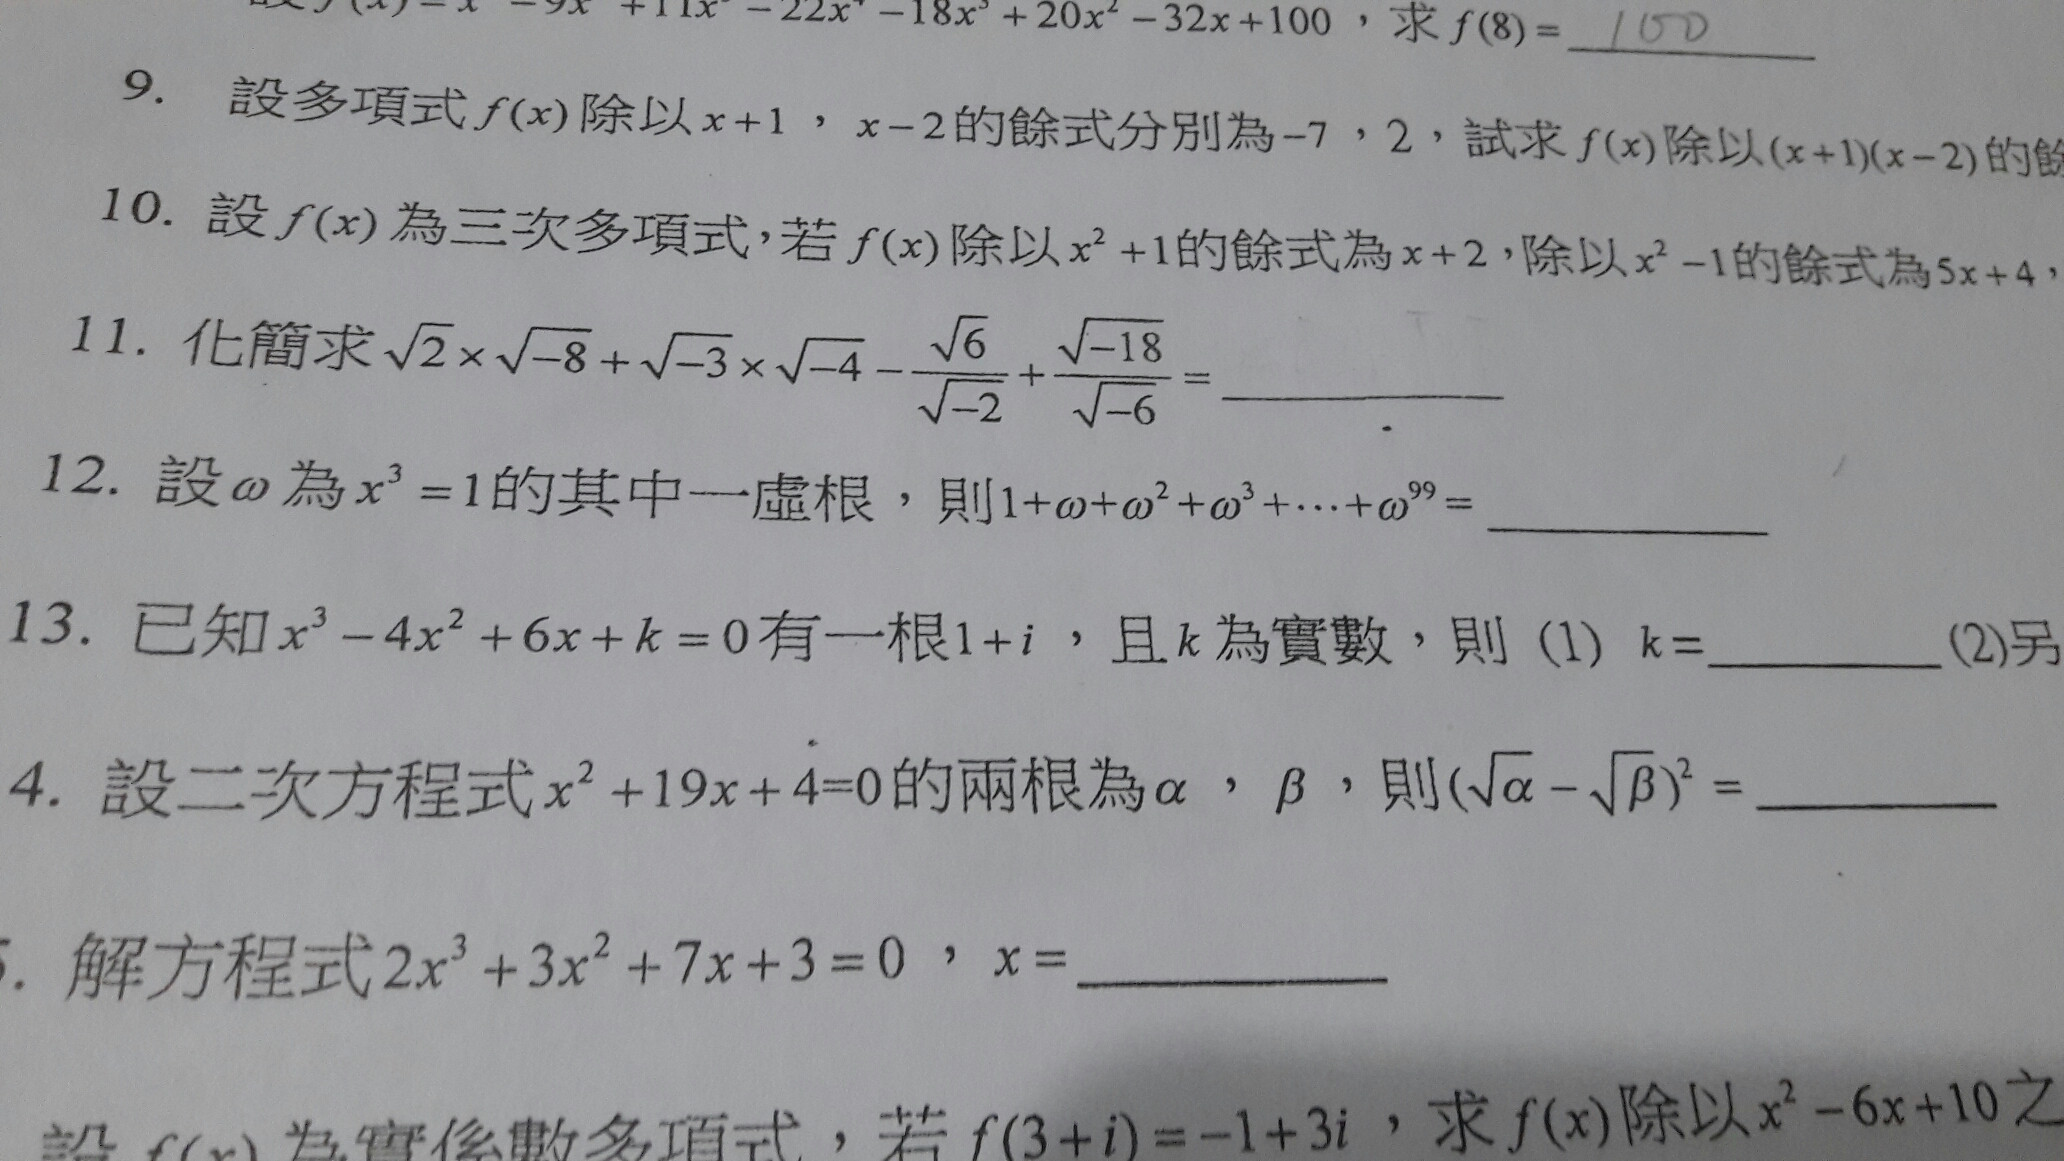 f(x)=x −9x +11x −22x⁴−18x³+20x²−32x+100，求 f(8)= 100
9. 設多項式 f(x) 除以 x+1，x−2的餘式分別為−7，2，試求 f(x) 除以 (x+1)(x−2) 的餘
10. 設 f(x) 為三次多項式，若 f(x) 除以 x²+1的餘式為 x+2，除以 x²−1的餘式為 5x+4，
11. 化簡求 √2×√−8+√−3×√−4−√6/√−2+√−18/√−6=
12. 設 ω 為 x³=1的其中一虛根，則1+ω+ω²+ω³+⋯+ω⁹⁹=
13. 已知 x³−4x²+6x+k=0有一根1+i，且 k 為實數，則 (1) k= (2)另
4. 設二次方程式 x²+19x+4=0的兩根為 α，β，則(√α−√β)²=
. 解方程式 2x³+3x²+7x+3=0，x=
設 f(x) 為實係數多項式，若 f(3+i)=−1+3i，求 f(x) 除以 x²−6x+10 之